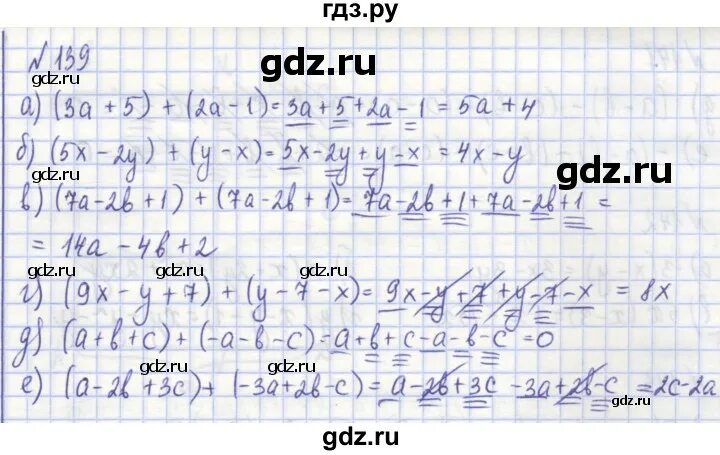 гдз.ру
№139
gdz.ru
gdz.ru
gdz.ru
а) (3a + 5) + (2a - 1) = 3a + 5 + 2a - 1 = 5a + 4
б) (5x - 2y) + (y - x) = 5x - 2y + y - x = 4x - y
gdz.ru
gdz.ru
gdz.ru
в) (7a - 2b + 1) + (7a - 2b + 1) = 7a - 2b + 1 + 7a - 2b + 1 =
= 14a - 4b + 2
gdz.ru
gdz.ru
г) (9x - y + 7) + (y - 7 - x) = 9x - y + 7 + y - 7 - x = 8x
д) (a + b + c) + (-a - b - c) = a + b + c - a - b - c = 0
gdz.ru
gdz.ru
gdz.ru
е) (a - 2b + 3c) + (-3a + 2b - c) = a - 2b + 3c - 3a + 2b - c = 2c - 2a
gdz.ru